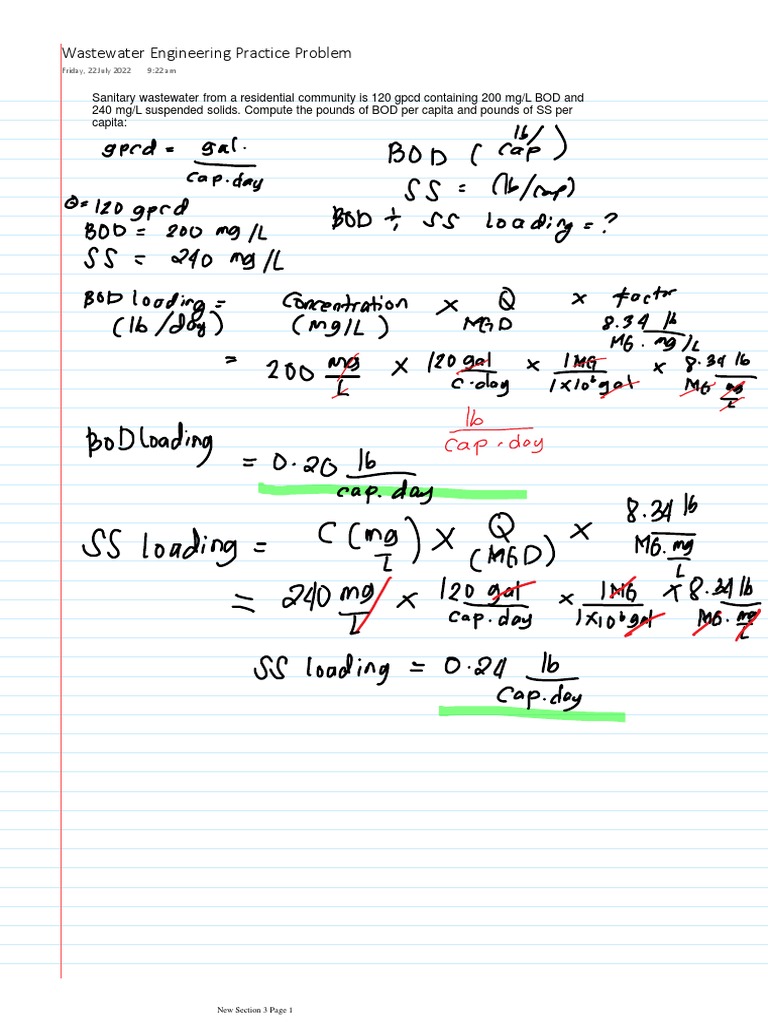 Wastewater Engineering Practice Problem
Friday, 22 July 2022 9:22 am
Sanitary wastewater from a residential community is 120 gpcd containing 200 mg/L BOD and
240 mg/L suspended solids. Compute the pounds of BOD per capita and pounds of SS per
capita:
gpcd = gal. / cap.day
BOD (lb/cap)
SS = (lb/cap)
Q = 120 gpcd
BOD = 200 mg/L
SS = 240 mg/L
BOD + SS loading = ?
BOD loading = Concentration × Q × factor
(lb/day) (mg/L) MGD 8.34 lb / MG. mg/L
= 200 mg/L × 120 gal / c.day × 1MG / 1×10⁶ gal × 8.34 lb / MG mg/L
lb / cap.day
BOD loading
= 0.20 lb / cap.day
SS loading = C (mg/L) × Q (MGD) × 8.34 lb / MG. mg/L
= 240 mg/L × 120 gal / cap.day × 1MG / 1×10⁶ gal × 8.34 lb / MG. mg/L
SS loading = 0.24 lb / cap.day
New Section 3 Page 1